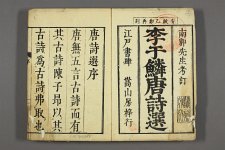 南郭先生考訂
李于鱗唐詩選
江戸書肆 嵩山房梓
唐詩選序
唐無五言古詩而有
其古詩陳子昂以其
古詩為古詩弗取也